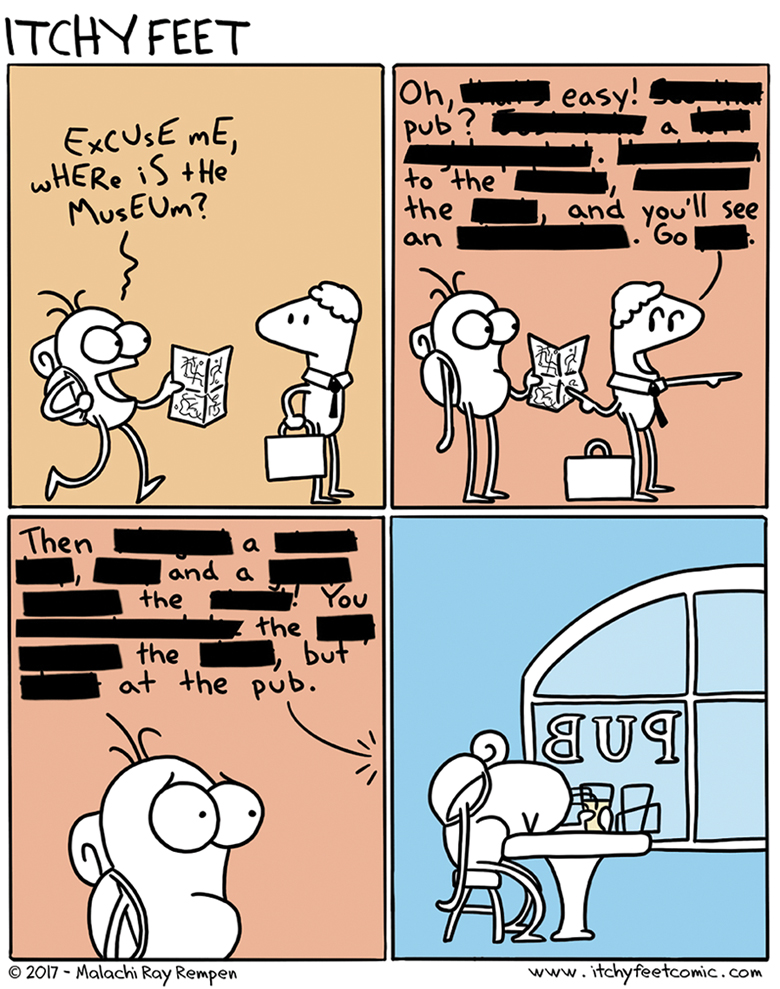 ITCHY FEET
ExCUsE mE,
wHERe iS tHe
MusEUm?
Oh, easy!
pub? a
.
to the ,
the , and you'll see
an . Go .
Then a
, and a
the ! You
the
the , but
at the pub.
PUB
© 2017 - Malachi Ray Rempen
www.itchyfeetcomic.com